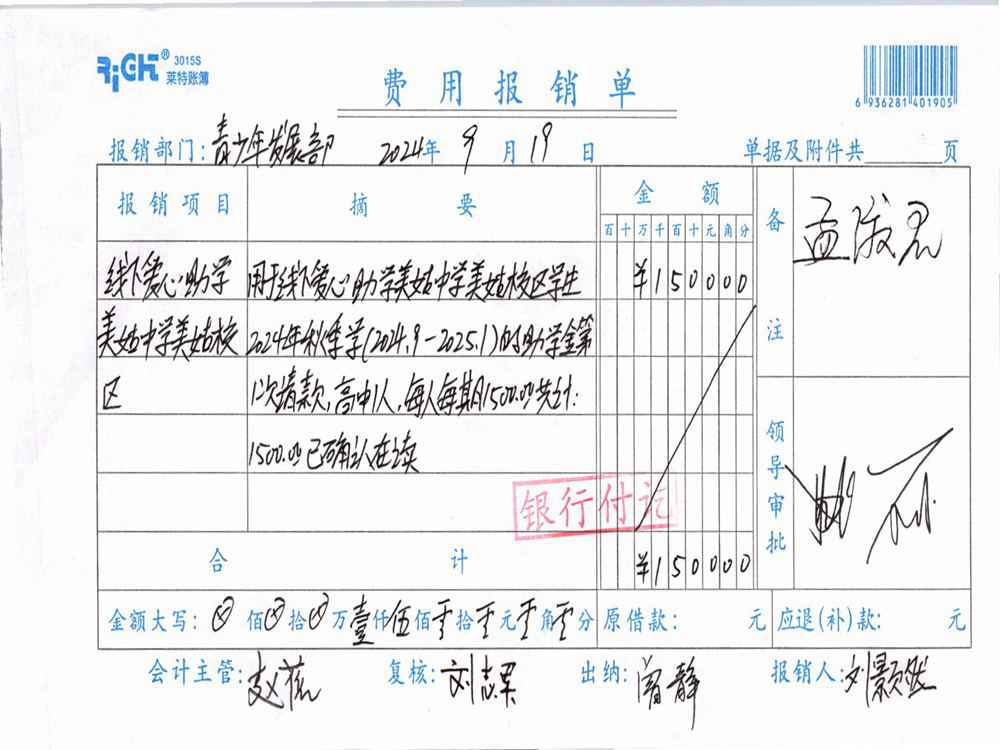 RiGHT® 3015S
莱特账簿
费用报销单
6 936281 401905
报销部门:青少年发展部 2024年9月19日 单据及附件共 页
报销项目 摘要 金额 备注
百十万千百十元角分
线下爱心助学 用于线下爱心助学美姑中学美姑校区学生 ¥150000
美姑中学美姑校 2024年秋季学(2024.9-2025.1)的助学金第
区 1次请款,高中1人,每人每期1500.00共计:
1500.00已确认在读
银行付讫
领导审批
合计 ¥150000
金额大写:⊗佰⊗拾⊗万壹仟伍佰零拾零元零角零分 原借款: 元 应退(补)款: 元
会计主管: 复核:刘志 出纳:静 报销人:刘颢然